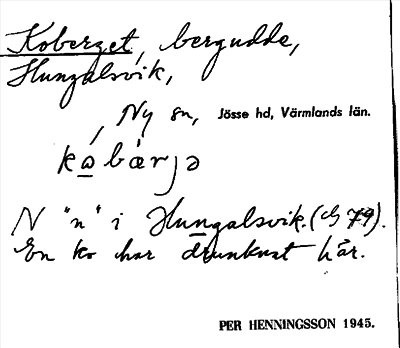 Koberget, bergudde,
Hungalsvik,
Ny sn, Jösse hd, Värmlands län.
N "n" i Hungalsvik.
En ko har drunknat här.
PER HENNINGSSON 1945.